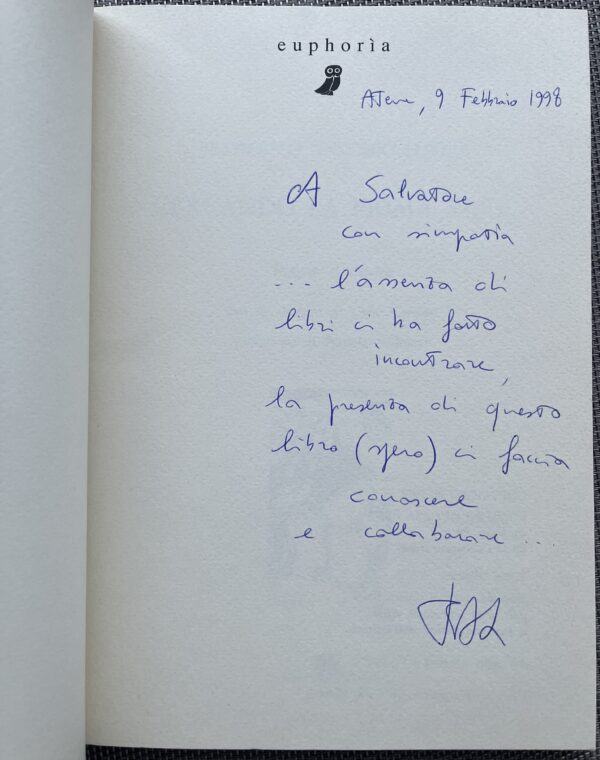 euphorìa
Atene, 9 Febbraio 1998
A Salvatore
con simpatia
... l'assenza di
libri ci ha fatto
incontrare,
la presenza di questo
libro (spero) ci faccia
conoscere
e collaborare ...